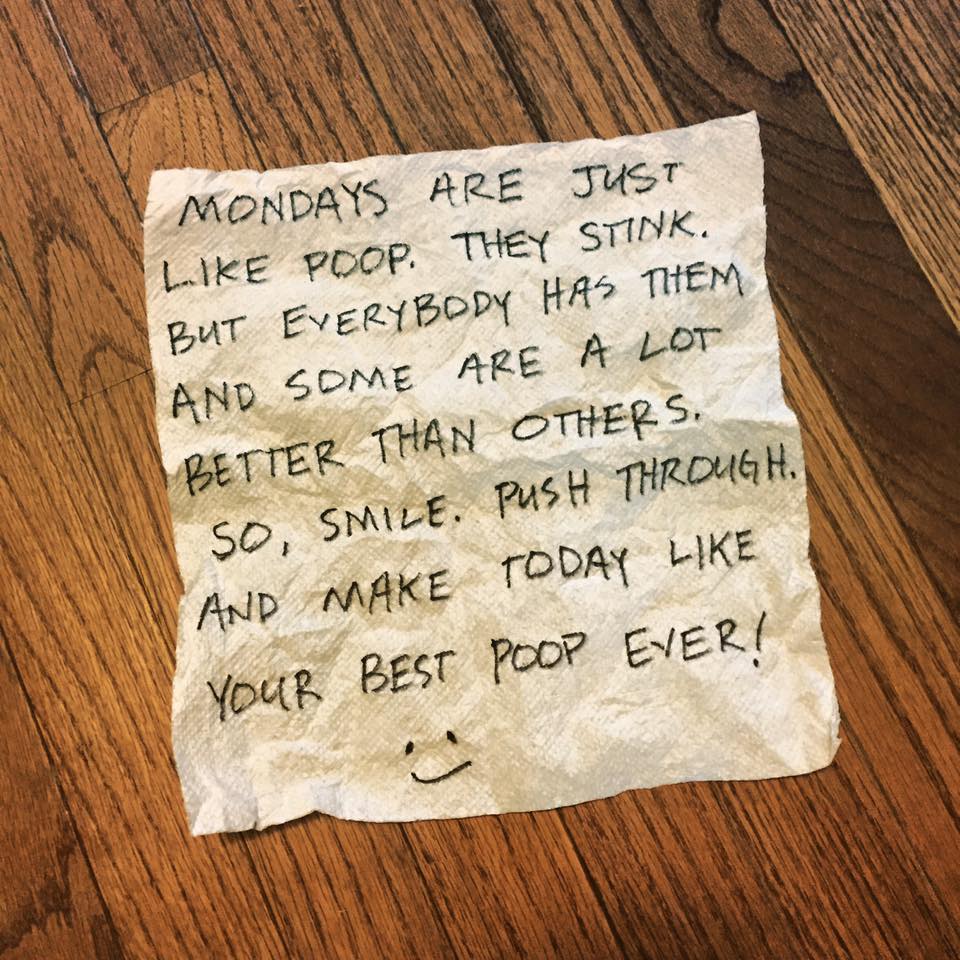 MONDAYS ARE JUST
LIKE POOP. THEY STINK.
BUT EVERYBODY HAS THEM
AND SOME ARE A LOT
BETTER THAN OTHERS.
SO, SMILE. PUSH THROUGH.
AND MAKE TODAY LIKE
YOUR BEST POOP EVER!